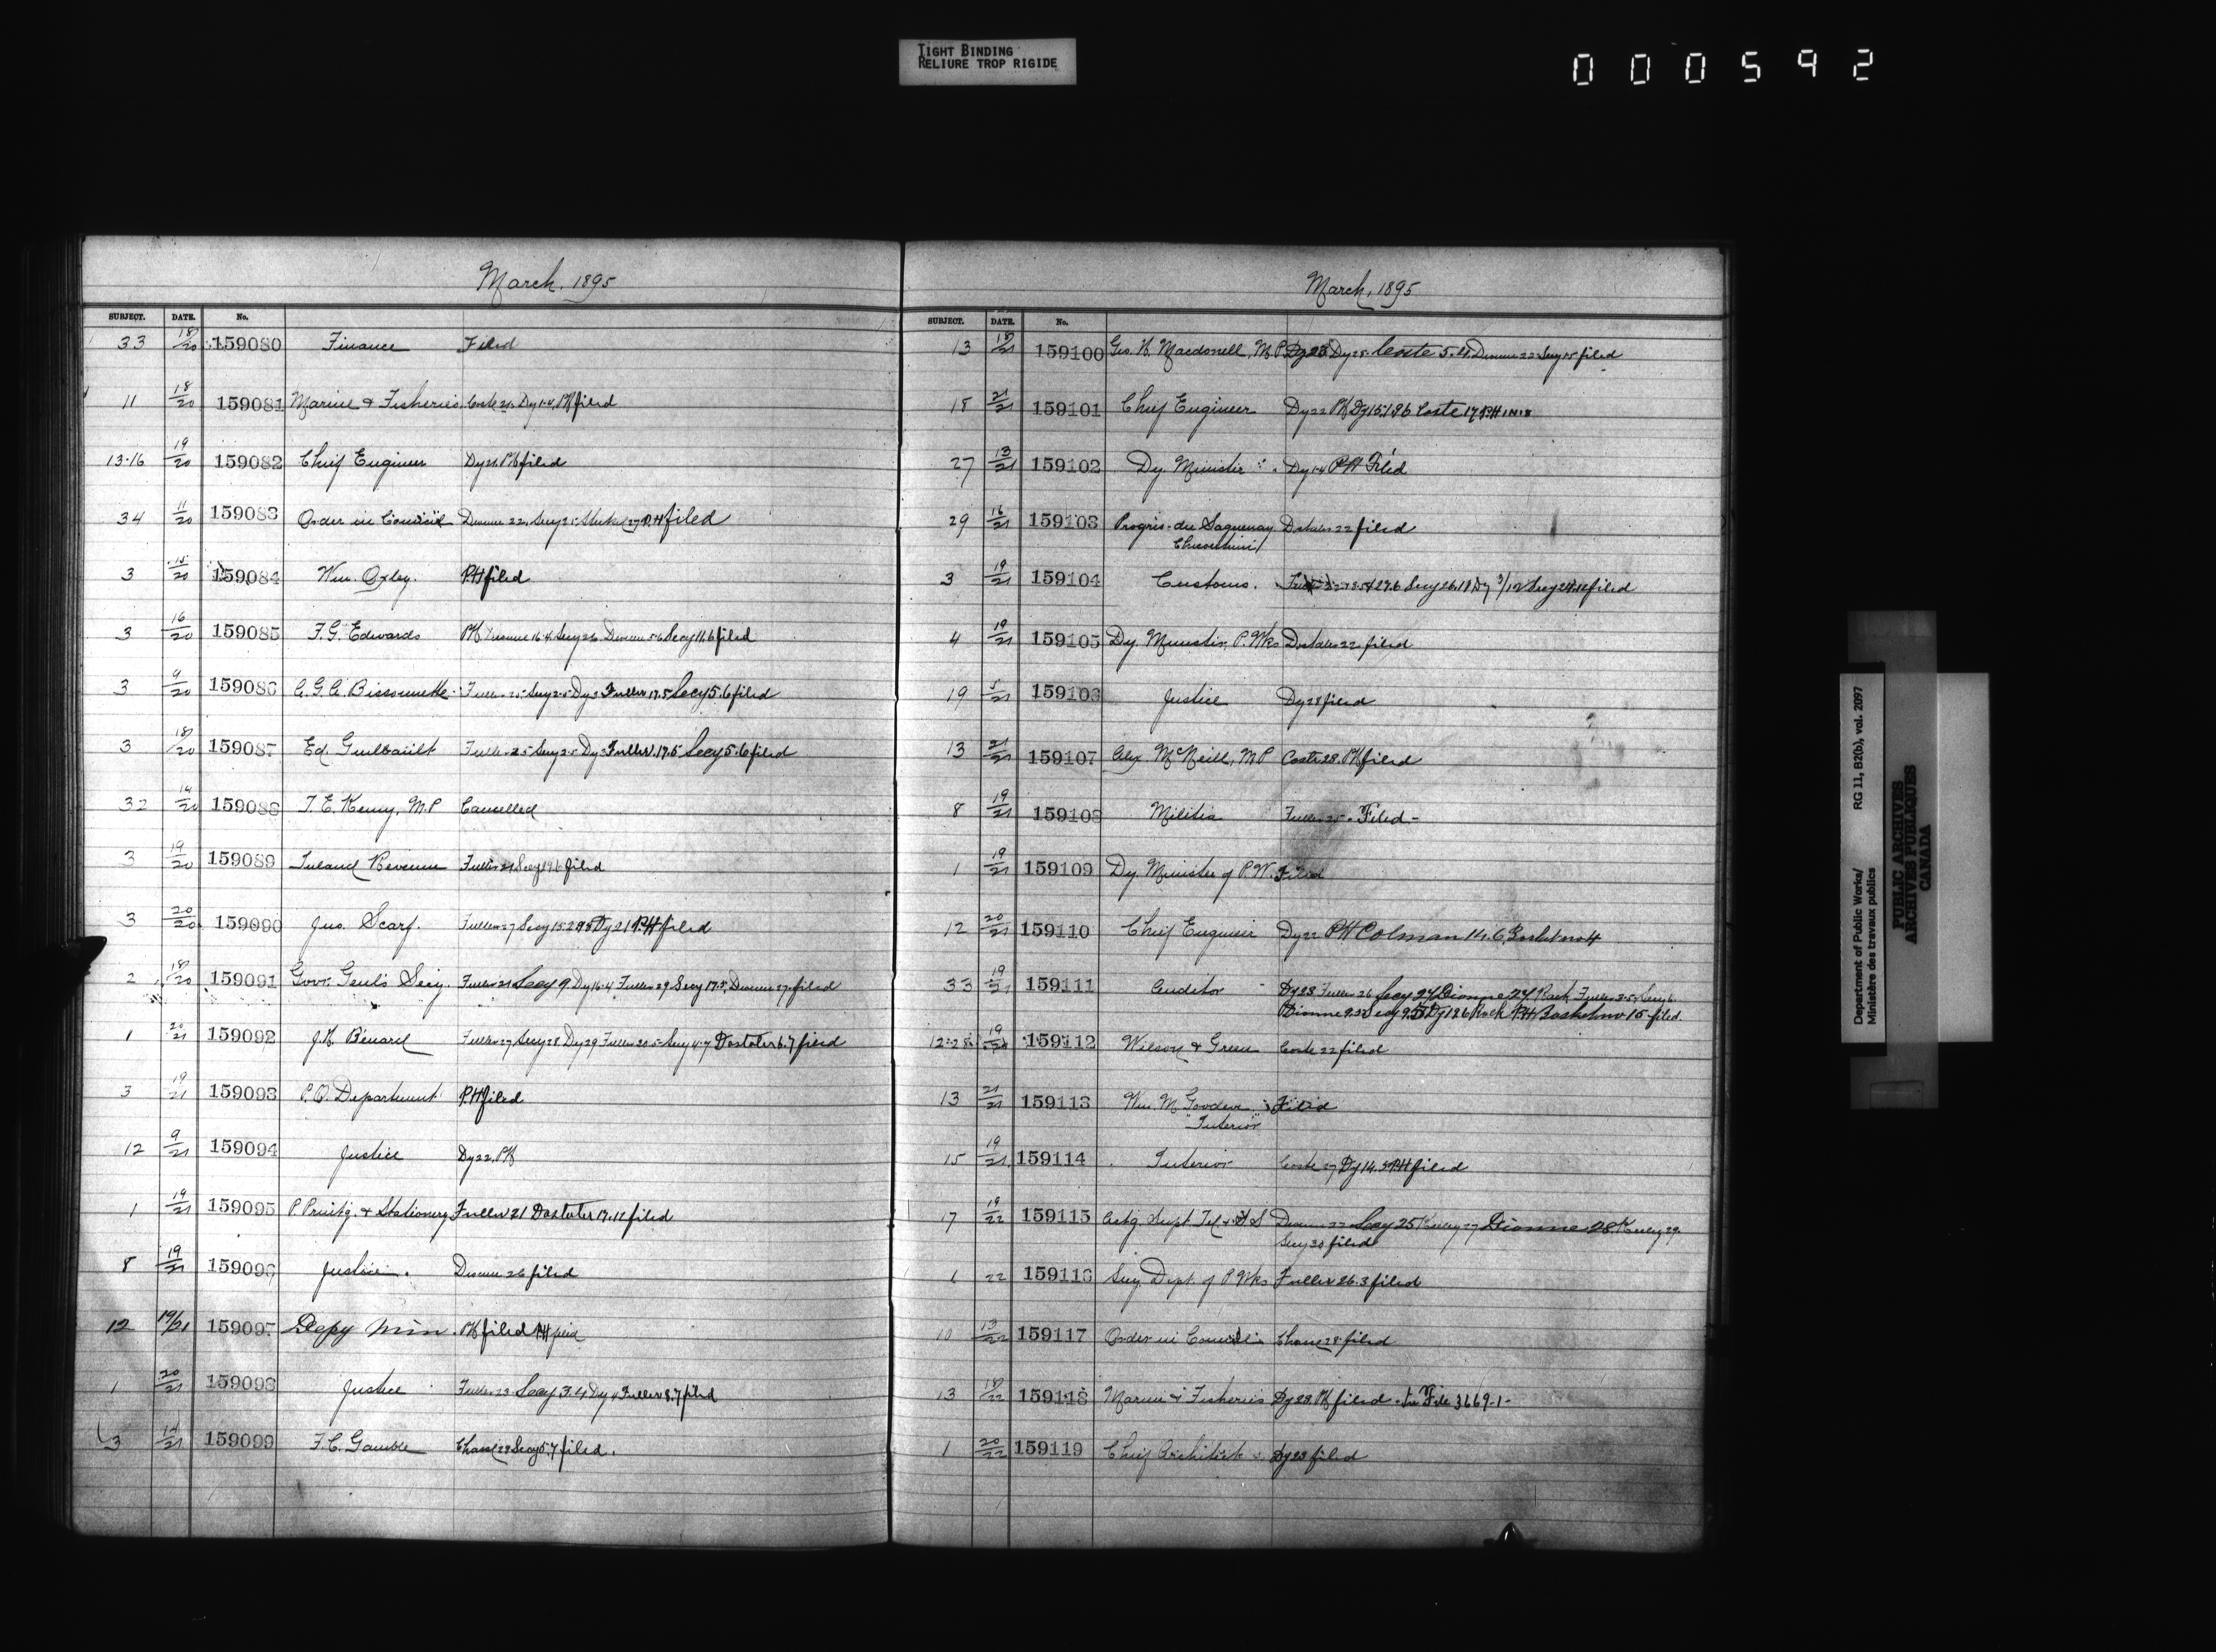 TIGHT BINDING
RELIURE TROP RIGIDE
000592
March, 1895
SUBJECT. DATE. No.
33 18/20 159080 Finance Filed
11 18/20 159081 Marine & Fisheries Coste 21. Dy 1.4. PH filed
13.16 19/20 159082 Chief Engineer Dy 21. PH filed
34 11/20 159083 Order in Council Dionne 22. Secy 25 27 PH filed
3 15/20 159084 Wm. Oxley. PH filed
3 16/20 159085 F. G. Edwards PH Dionne 16.4 Secy 26 Dionne 5.6 Secy 11.6 filed
3 9/20 159086 Bissonnette Fuller 25 Secy 2.5 Dy 3 Fuller 17.5 Secy 5.6 filed
3 18/20 159087 Ed. Guilbault Fuller 25 Secy 2.5 Dy 3 Fuller 17.5 Secy 5.6 filed
32 14/20 159088 T. E. Kenny, M.P Cancelled
3 19/20 159089 Inland Revenue Fuller 21 Secy 19.6 filed
3 20/20 159090 Jno. Scarf. Fuller 27 Secy 15.2 Dy 21 PH filed
2 18/20 159091 Govr. Genl's Secy Fuller 21 Secy 9 Dy 16.4 Fuller 29 Secy 17.5, Dionne 27. filed
1 20/21 159092 Fuller 27 Secy 28 Dy 29 Fuller 20.5 Secy 4.7 Dostaler 6.7 filed
3 19/21 159093 P.O. Department PH filed
12 9/21 159094 Justice Dy 22. PH
1 19/21 159095 P. Printg. & Stationery Fuller 21 Dostaler 17.12 filed
8 19/21 159096 Justice. Dionne 26 filed
12 19/21 159097 Depy Min. PH filed PH filed
1 20/21 159098 Justice Fuller 23 Secy 3.4 Dy 4 Fuller 8.7 filed
3 159099 F. C. Gamble Chasse 29 Secy 5.7 filed.
March, 1895
SUBJECT. DATE. No.
13 18/21 159100 Geo. H. Macdonell, M P Dy 23 Dy 25. Coste 5.4. Dionne 22 Secy 15 filed
18 21/21 159101 Chief Engineer Dy 22 PH Dy 15.1.96 Coste 17 PH
27 13/21 159102 Dy. Minister Dy 1.4 PH Filed
29 16/21 159103 Progrès-du Saguenay Dostaler 22 filed
Chicoutimi
3 19/21 159104 Customs. 29.6 Secy 26.11 Dy 3/12 Secy filed
4 19/21 159105 Dy. Minister, P. Wks Dostaler 22 filed
19 5/21 159106 Justice Dy 28 filed
13 21/21 159107 Alex. McNeill, M.P Coste 28. PH filed
8 19/21 159108 Militia Fuller 25 - Filed -
1 19/21 159109 Dy. Minister of P.W. Filed
12 20/21 159110 Chief Engineer Dy 22 PH Colman 14.6
33 19/21 159111 Auditor Dy 23 Fuller 26 Secy 27 Dionne 27 Fuller 3.5 Secy 6
Dionne Secy Dy 12.6 PH 15 filed.
12.28 19/20 159112 Wilson & Green Coste 22 filed
13 21/21 159113 Wm. M. Filed
"Interior"
15 19/21 159114 Interior Coste 27 Dy 14.5 PH filed
17 19/22 159115 Actg. Supt. Tel & Dionne 22 Secy 25 Keeley 27 Dionne 28 Keeley 29.
Secy 30 filed
1 22 159116 Secy. Dept. of P Wks Fuller 26.3 filed
10 13/22 159117 Order in Council Chasse 28 filed
13 18/22 159118 Marine & Fisheries Dy 23. PH filed - File 3669-1-
1 20/22 159119 Chief Architect Dy 23 filed
Department of Public Works/
Ministère des travaux publics
RG 11, B2(b), vol. 2097
PUBLIC ARCHIVES
ARCHIVES PUBLIQUES
CANADA